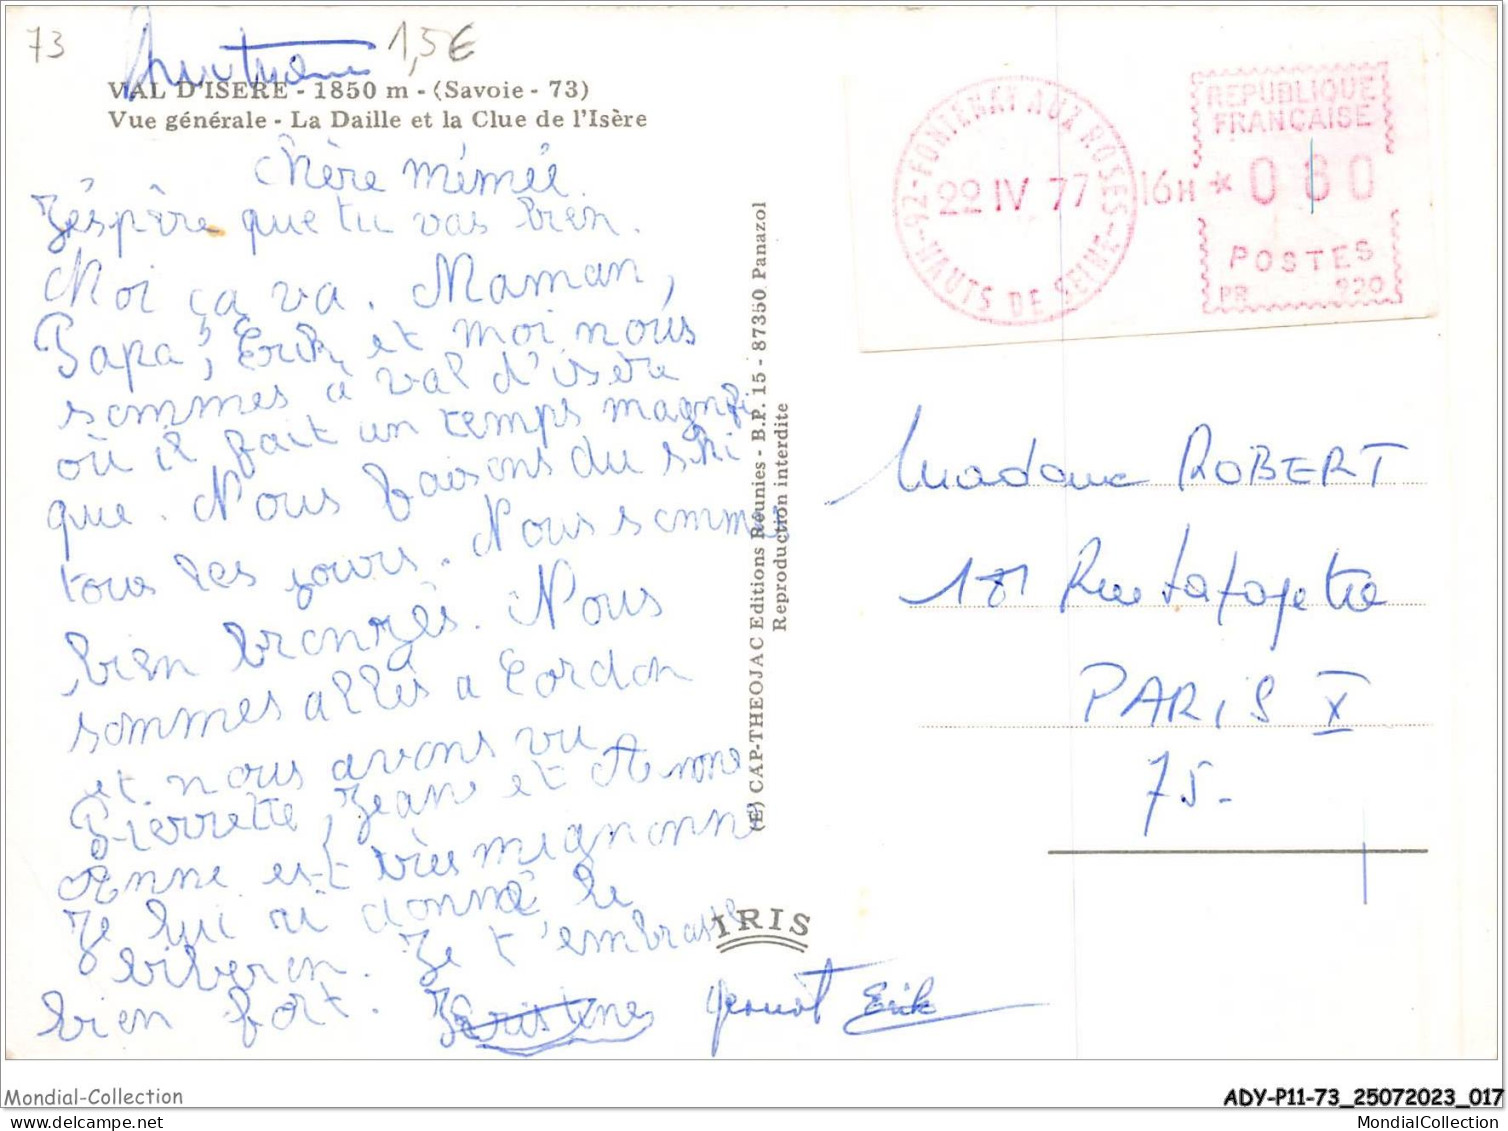 73
1,5€
VAL D'ISERE - 1850 m - (Savoie - 73)
Vue générale - La Daille et la Clue de l'Isère
Chère mémée.
J'éspère que tu vas bien.
Moi ça va. Maman,
Papa, Erik et moi nous
sommes à val d'isère
où il fait un temps magnifi
que. Nous faisons du ski
tous les jours. Nous sommes
bien bronzés. Nous
sommes allés a Cordon
et nous avons vu
Pierrette, Jean et Anne
Anne est très mignonne
Je lui ai donné le
biberon. Je t'embrasse
bien fort.
Erik
(E) CAP-THEOJAC Editions Réunies - B.P. 15 - 87350 Panazol
Reproduction interdite
IRIS
92-FONTENAY AUX ROSES
HAUTS DE SEINE
22 IV 77
16H * 060
REPUBLIQUE
FRANÇAISE
POSTES
PR 920
Madame ROBERT
181 Rue Lafayette
PARIS X
75-
Mondial-Collection
ADY-P11-73_25072023_017
www.mondialcollection.com
MondialCollection.com